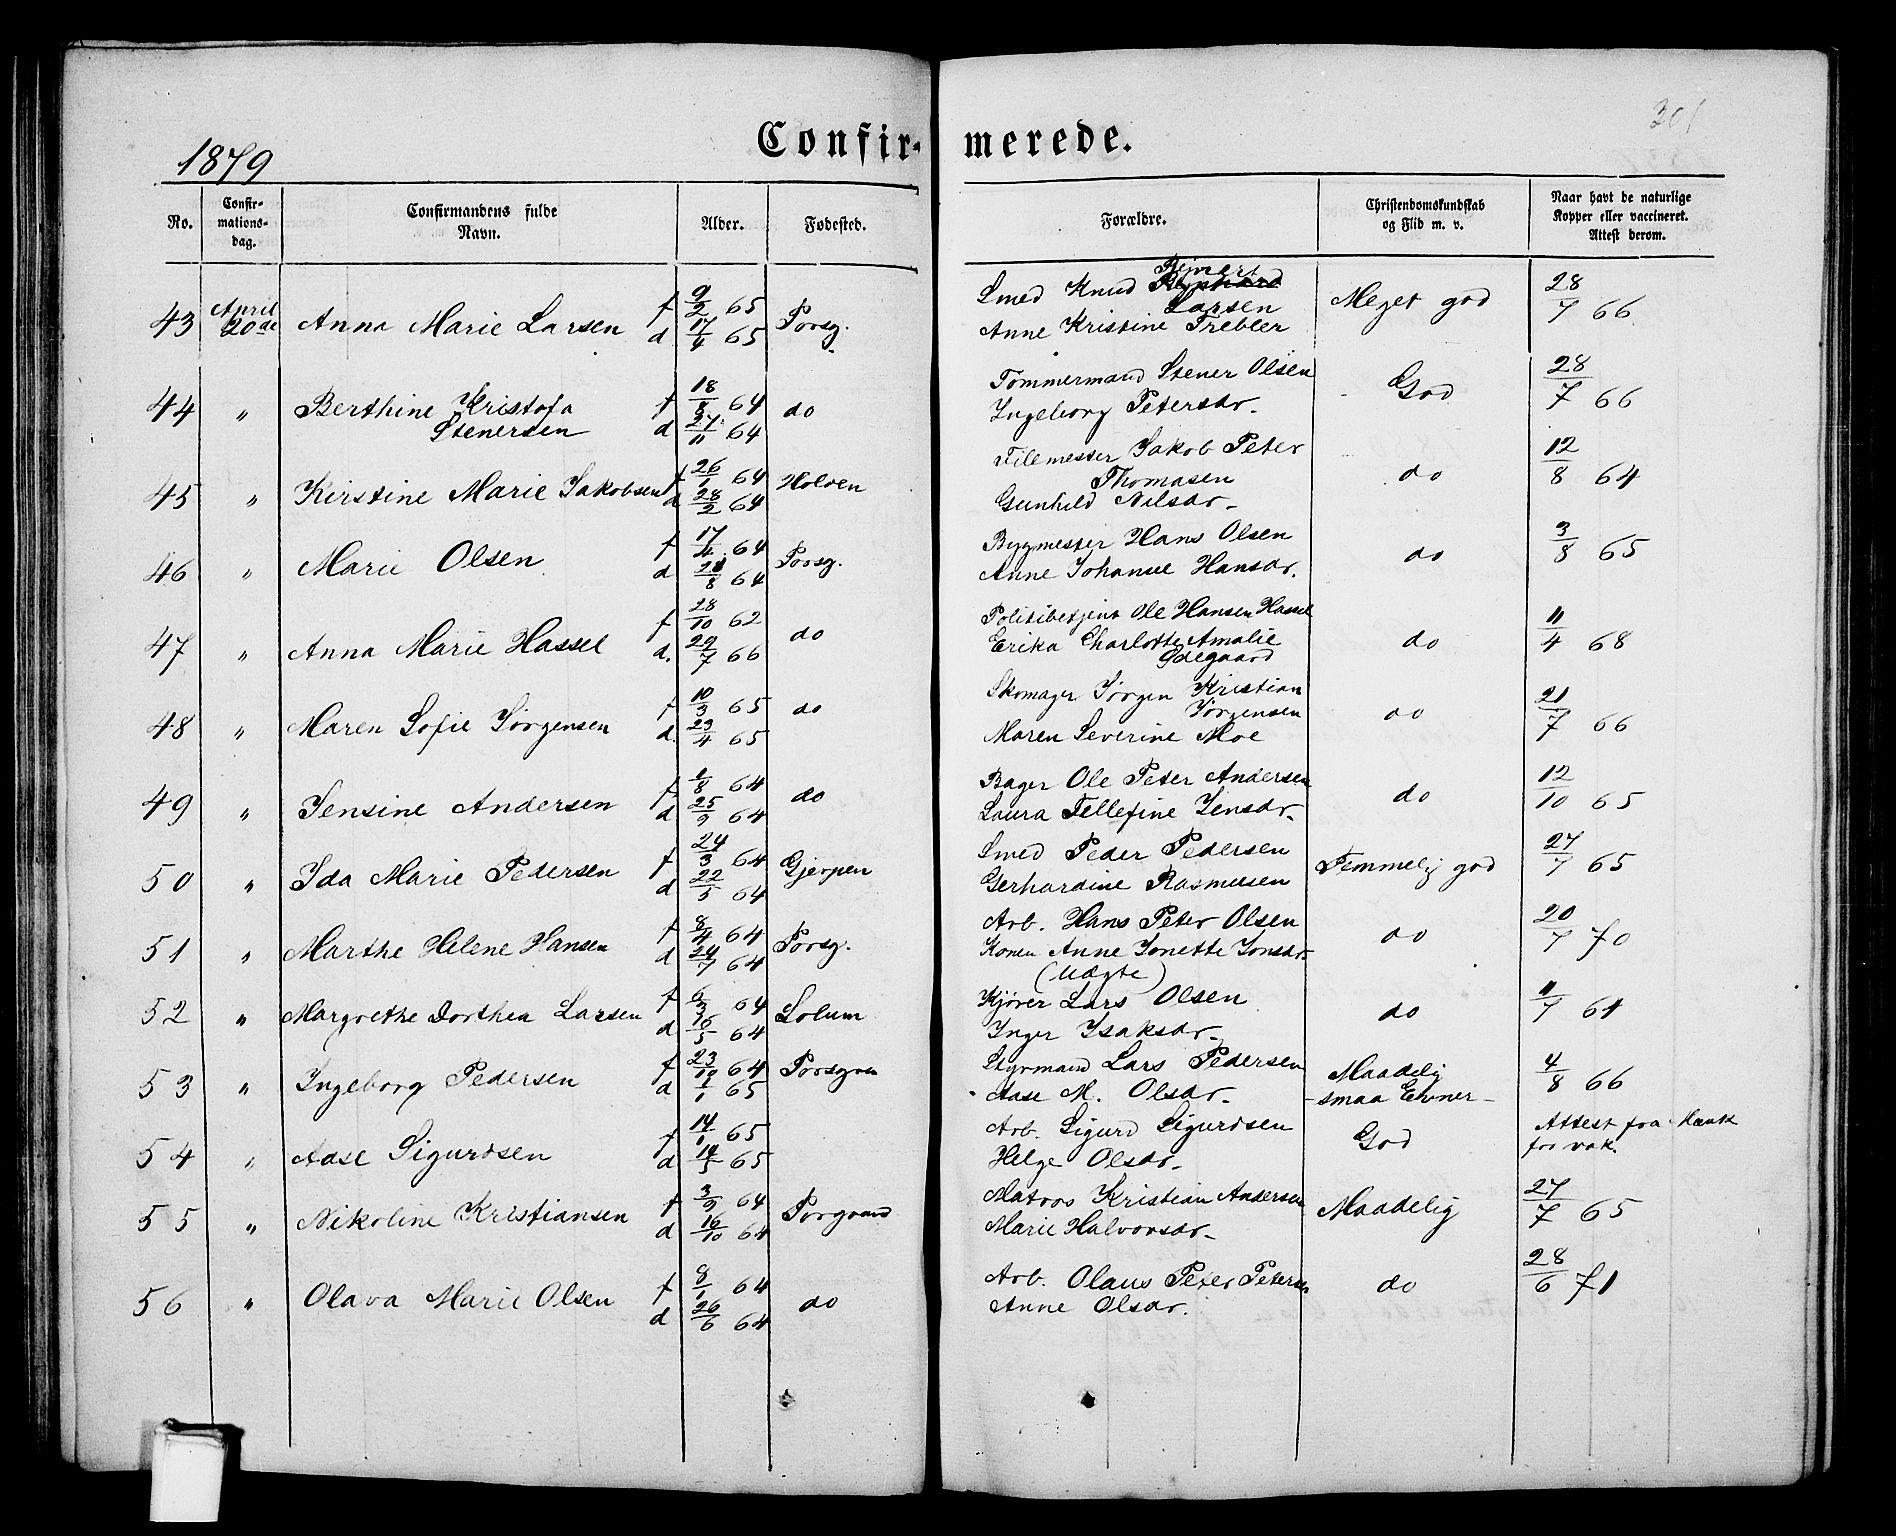 301
1879
Confirmerede.
No. | Confirmationsdag. | Confirmandens fulde Navn. | Alder. | Fødested. | Forældre. | Christendomskundskab og Flid m. v. | Naar havt de naturlige Kopper eller vaccineret. Attest derom.
43 | April 20de | Anna Marie Larsen | f 9/2 65 d 17/4 65 | Porsg. | Smed Knud Rejnert Larsen Anne Kristine Trebler | Meget god | 28/7 66
44 | " | Berthine Kristofa Stenersen | f 18/8 64 d 27/11 64 | do | Tømmermand Stener Olsen Ingeborg Petersdr. | God | 28/7 66
45 | " | Kirstine Marie Jakobsen | f 26/1 64 d 28/2 64 | Holden | Filemester Jakob Peter Thomasen Gunhild Nilsdr. | do | 12/8 64
46 | " | Marie Olsen | f 17/4 64 d 21/8 64 | Porsg. | Bygmester Hans Olsen Anne Johanne Hansdr. | do | 3/8 65
47 | " | Anna Marie Hassel | f 28/10 62 d. 29/7 66 | do | Politibetjent Ole Hansen Hassel Erika Charlotte Amalie Ødegaard | do | 11/4 68
48 | " | Maren Sofie Jørgensen | f 10/3 65 d. 23/4 65 | do | Skomager Jørgen Kristian Jørgensen Maren Severine Moe | do | 21/7 66
49 | " | Jensine Andersen | f. 1/8 64 d 25/9 64 | do | Bager Ole Peter Andersen Laura Tellefine Jensdr. | do | 12/10 65
50 | " | Ida Marie Pedersen | f 24/3 64 d 22/5 64 | Gjerpen | Smed Peder Pedersen Gerhardine Rasmusen | Temmelig god | 27/7 65
51 | " | Marthe Helene Hansen | f 8/4 64 d 24/7 64 | Porsg. | Arb. Hans Peter Olsen Konen Anne Jonette Jonsdr. (Uægte) | do | 20/7 70
52 | " | Margrethe Dorthea Larsen | f 6/3 64 d 16/5 64 | Solum | Kjører Lars Olsen Inger Isaksdr. | do | 11/7 64
53 | " | Ingeborg Pedersen | f 23/10 64 d 1/1 65 | Porsgrn | Styrmand Lars Pedersen Aase M. Olsdr. | Maadelig - smaa Evner - | 4/8 66
54 | " | Aase Sigurdsen | f 14/1 65 d 14/5 65 | Arb. Sigurd Sigurdsen Helge Olsdr. | God | Attest fra for vak.
55 | " | Nikoline Kristiansen | f 3/9 64 d 16/10 64 | Porsgrund | Matros Kristian Andersen Marie Halvorsdr. | Maadelig | 27/7 65
56 | " | Olava Marie Olsen | f 8/1 64 d 26/6 64 | do | Arb. Olaus Peter Petersen Anne Olsdr. | do | 28/6 71